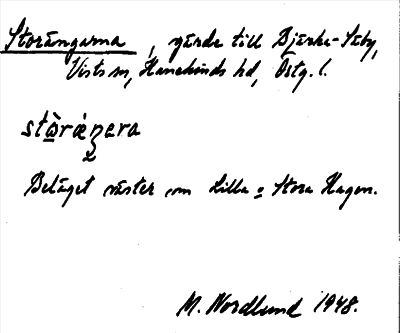 Storängarna, gärde till Bjärka-Säby,
Vists sn, Hanekinds hd, Östg. l.
stɷ̀ræ̀ŋera
Beläget väster om Lilla o Stora Hagen.
M. Nordlund 1948.